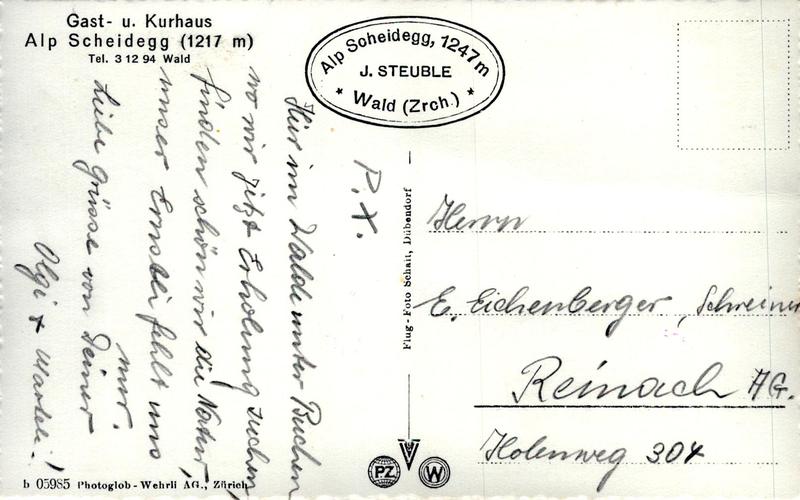 Gast- u. Kurhaus
Alp Scheidegg (1217 m)
Tel. 3 12 94 Wald
Alp Scheidegg, 1247m
J. STEUBLE
* Wald (Zrch.) *
Hier im Walde unter Buchen
wo wir jetzt Erholung suchen,
finden schön wir die Natur,
unser Ernstli fehlt uns
nur.
Liebe Grüsse von Deiner
Olgi +
P.X.
Flug-Foto Schait, Dübendorf
Herrn
E. Eichenberger, Schreiner
Reinach AG.
Holenweg 304
PZ
W
b 05985 Photoglob-Wehrli AG., Zürich